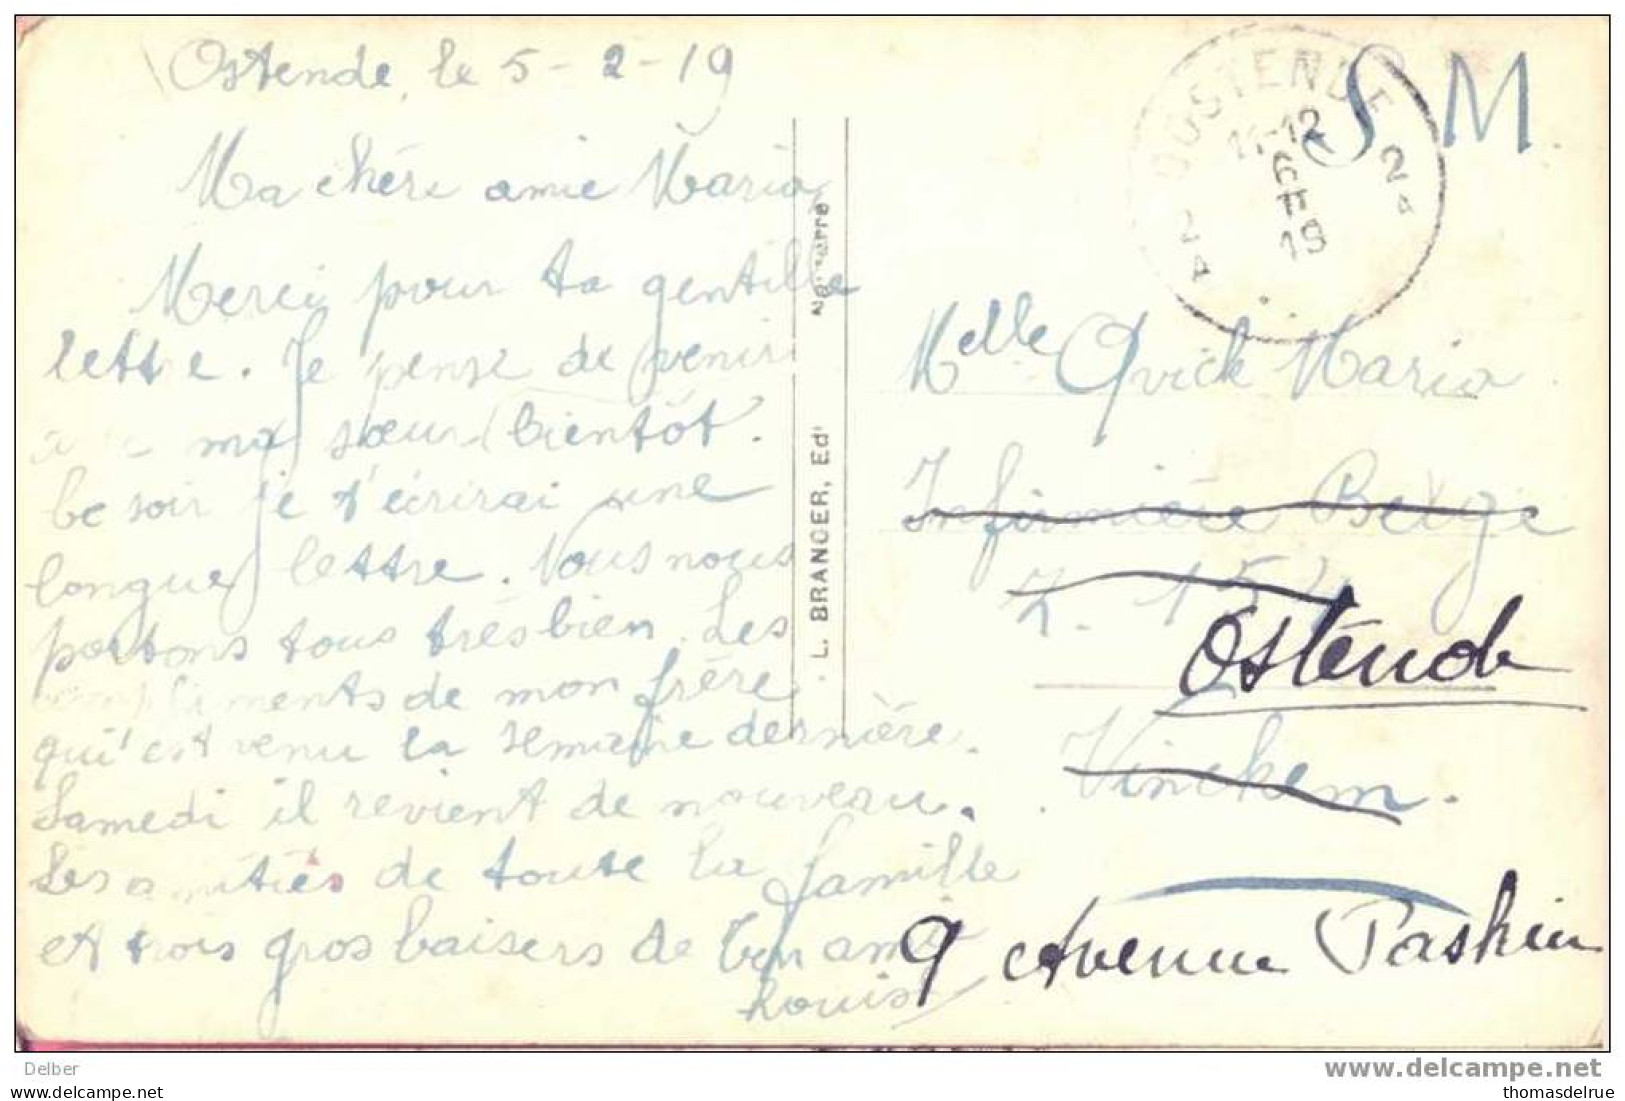 Ostende, le 5-2-19
Ma chére amie Maria
Merci pour ta gentille
lettre. Je pense de venir
ma sœur bientôt.
Ce soir je t'écrirai une
longue lettre. Vous nous
portons tous trés bien. Les
compliments de mon frére
qui est venu la semaine derniére.
Samedi il revient de nouveau.
Les amitiés de toute la famille
et trois gros baisers de ton ami
Louis
L. BRANGER, Ed'
OOSTENDE
11-12
6
II
19
2
A
2
A
S M
Melle Quick Maria
Infirmière Belge
Z.
Ostende
Vinckem.
9 Avenue Paskin
Delber
www.delcampe.net
posté par
thomasdelrue